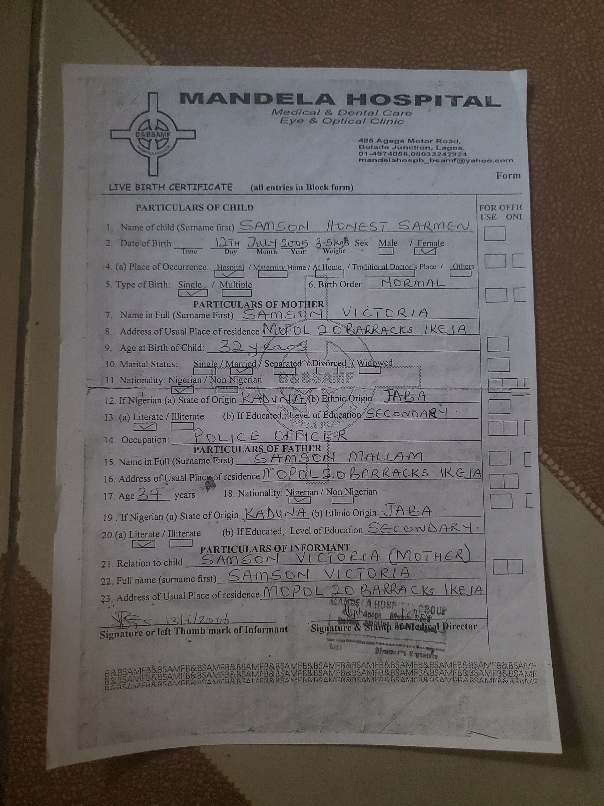 MANDELA HOSPITAL
Medical & Dental Care
Eye & Optical Clinic
B&BSAMF
486 Agege Motor Road,
Bolade Junction, Lagos.
mandelahospb_bsamf@yahoo.com
Form
LIVE BIRTH CERTIFICATE (all entries in Block form)
PARTICULARS OF CHILD
FOR OFFI
USE ONL
1. Name of child (Surname first) SAMSON HONEST SARMEN
2. Date of Birth 12TH JULY 2005 3.5kgs Sex Male / Female
Time Day Month Year Weight
4. (a) Place of Occurrence Hospital / Maternity Home / At Home / Traditional Doctor's Place / Others
5. Type of Birth: Single / Multiple 6. Birth Order NORMAL
PARTICULARS OF MOTHER
7. Name in Full (Surname First) SAMSON VICTORIA
8. Address of Usual Place of residence MOPOL 20 BARRACKS IKEJA
9. Age at Birth of Child: 32 years
10. Marital Status: Single / Married / Separated / Divorced / Widowed
11. Nationality Nigerian / Non Nigerian
12. If Nigerian (a) State of Origin KADUNA (b) Ethnic Origin JABA
13. (a) Literate / Illiterate (b) If Educated, Level of Education SECONDARY.
14. Occupation: POLICE OFFICER
PARTICULARS OF FATHER
15. Name in Full (Surname First) SAMSON MALLAM
16. Address of Usual Place of residence MOPOL 20 BARRACKS IKEJA
17. Age 34 years 18. Nationality: Nigerian / Non Nigerian
19. If Nigerian (a) State of Origin KADUNA (b) Ethnic Origin JABA
20. (a) Literate / Illiterate (b) If Educated, Level of Education SECONDARY.
PARTICULARS OF INFORMANT
21. Relation to child SAMSON VICTORIA (MOTHER)
22. Full name (surname first) SAMSON VICTORIA
23. Address of Usual Place of residence MOPOL 20 BARRACKS IKEJA
GROUP
Signature or left Thumb mark of Informant Signature & Stamp of Medical Director